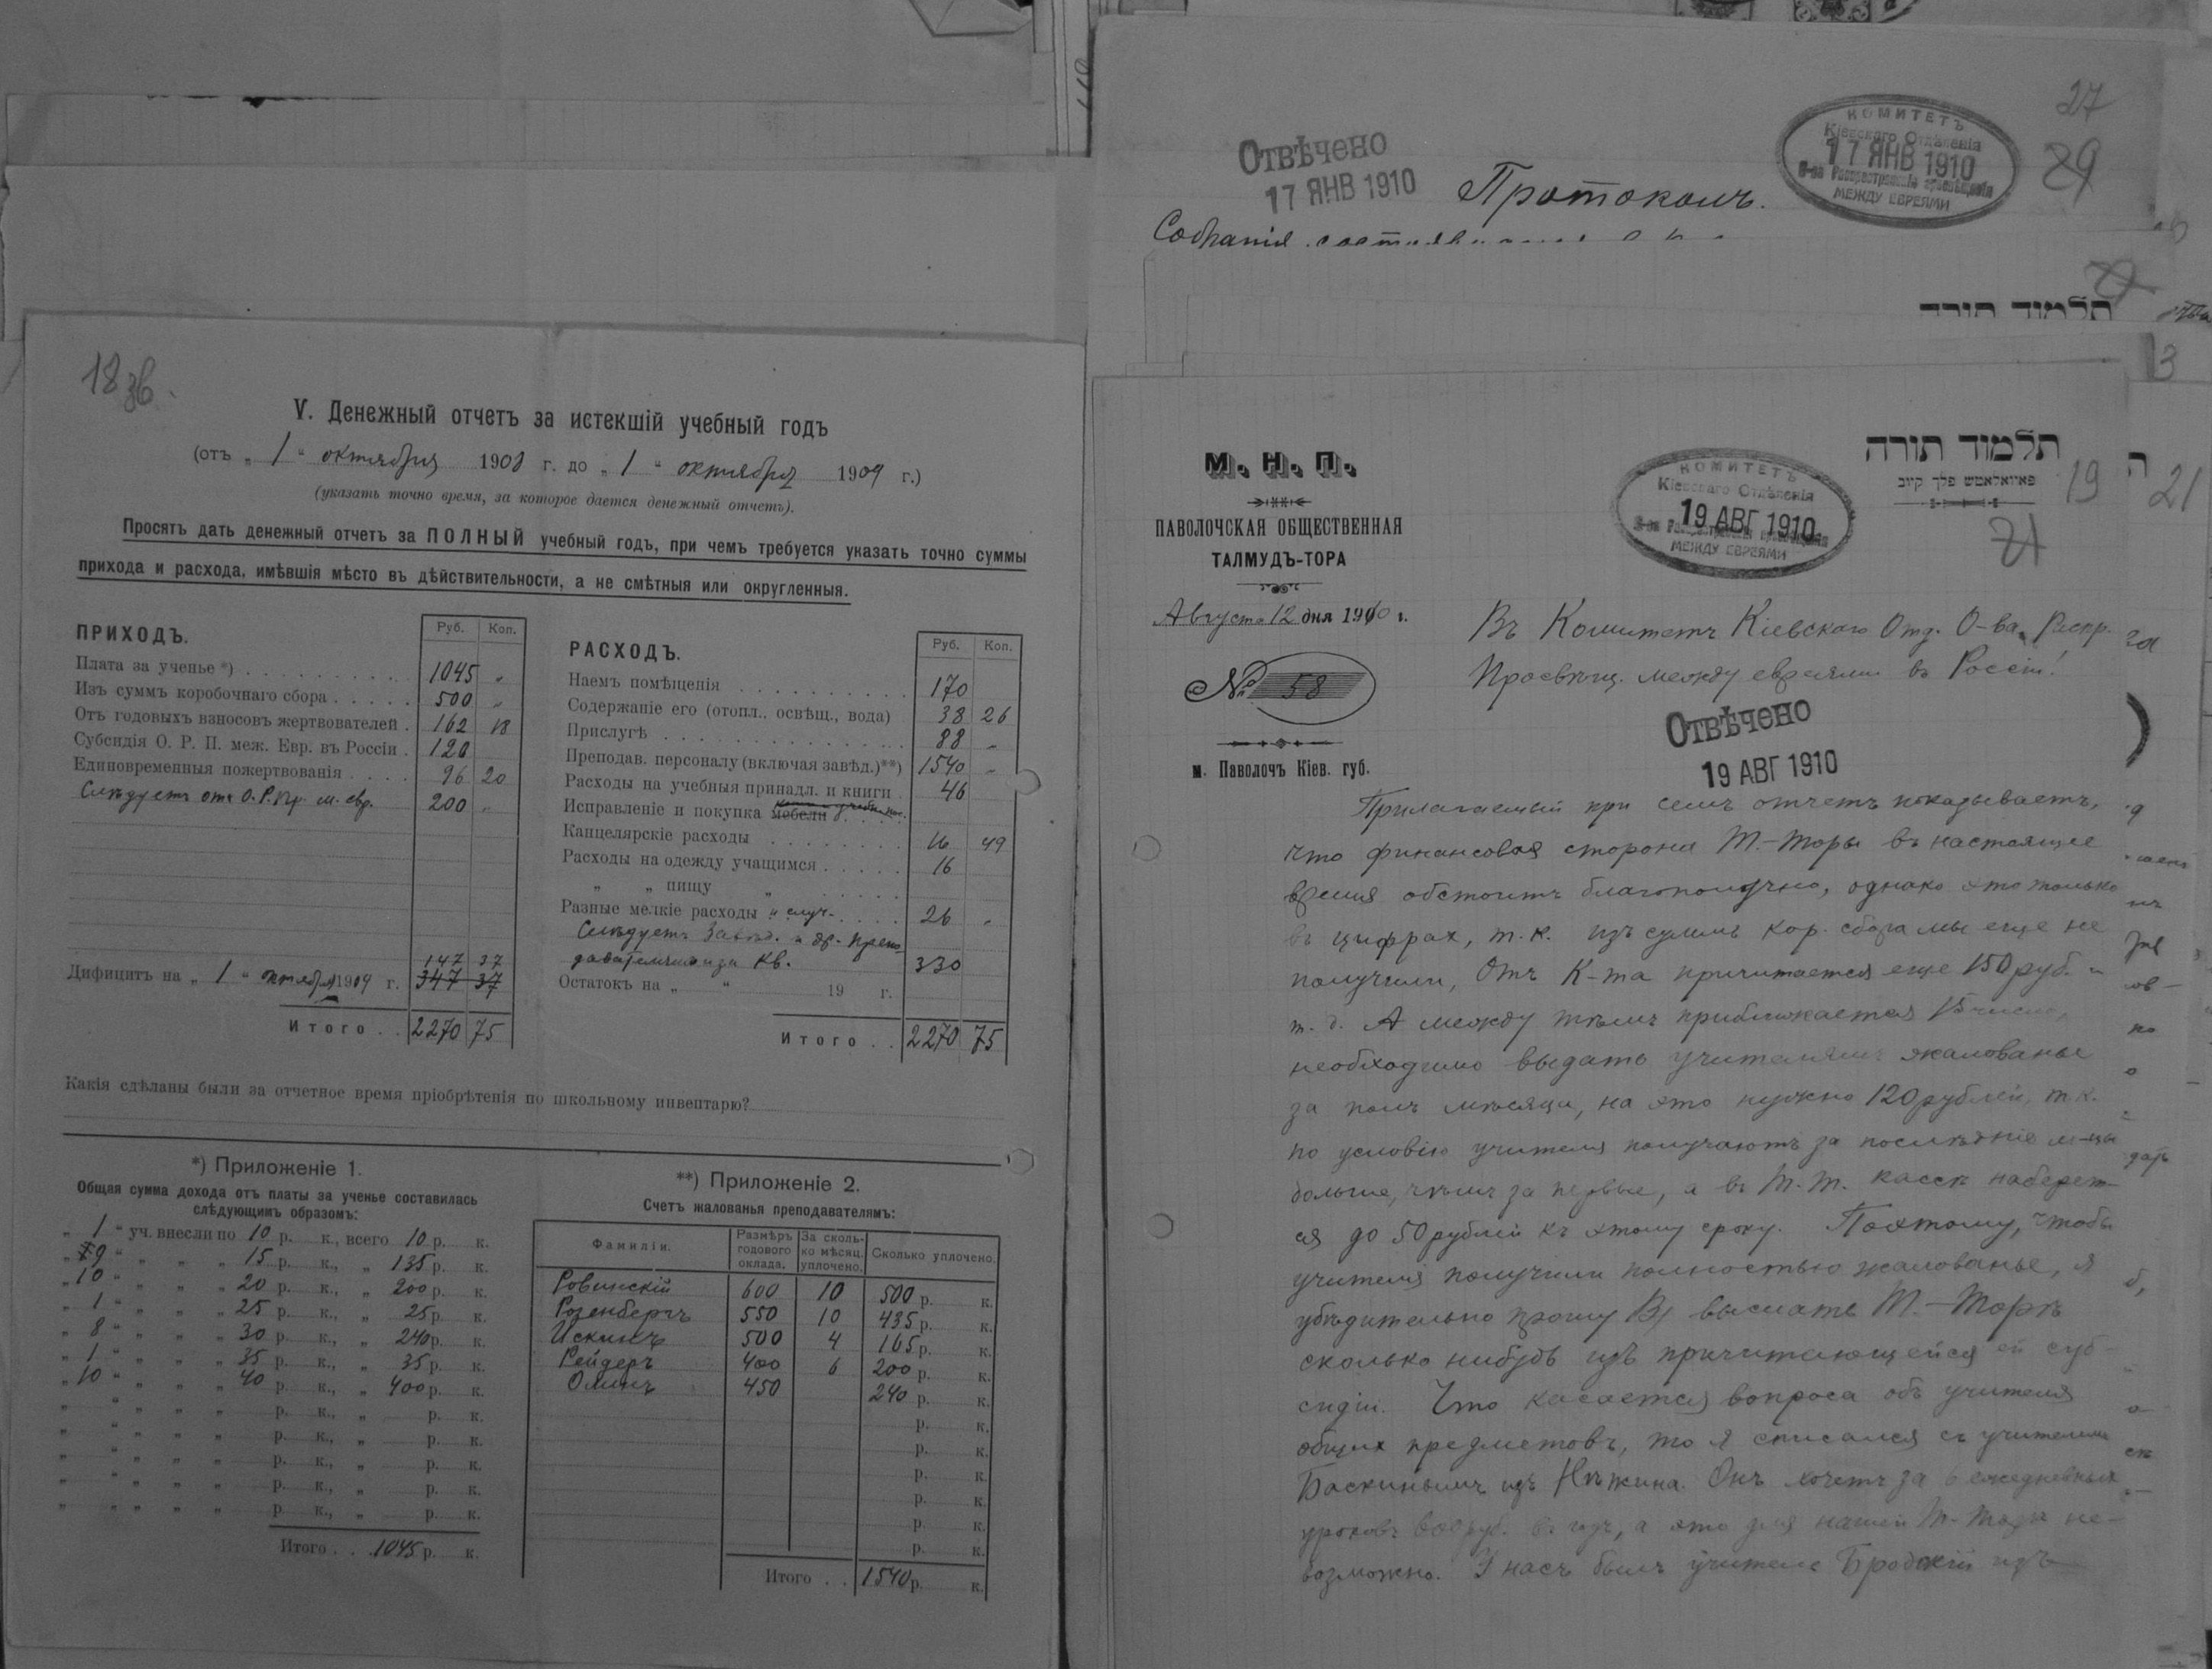 18 зв.
V. Денежный отчетъ за истекшій учебный годъ
(отъ „ 1 “ октября 1908 г. до „ 1 “ октября 1909 г.)
(указать точно время, за которое дается денежный отчетъ).
Просятъ дать денежный отчетъ за ПОЛНЫЙ учебный годъ, при чемъ требуется указать точно суммы
прихода и расхода, имѣвшія мѣсто въ дѣйствительности, а не смѣтныя или округленныя.
ПРИХОДЪ. Руб. Коп.
Плата за ученье *) 1045 „
Изъ суммъ коробочнаго сбора 500 „
Отъ годовыхъ взносовъ жертвователей 162 18
Субсидія О. Р. П. меж. Евр. въ Россіи 120
Единовременныя пожертвованія 96 20
Слѣдуетъ отъ О. Р. Пр. м. евр. 200 „
147 37
Дифицитъ на „ 1 “ октября 1909 г. 347 37
Итого 2270 75
РАСХОДЪ. Руб. Коп.
Наемъ помѣщенія 170
Содержаніе его (отопл., освѣщ., вода) 38 26
Прислугѣ 88 „
Преподав. персоналу (включая завѣд.)**) 1540 „
Расходы на учебныя принадл. и книги 46
Исправленіе и покупка мебели
Канцелярскіе расходы 16 49
Расходы на одежду учащимся 16
„ „ пищу „
Разные мелкіе расходы и случ. 26 „
Слѣдуетъ Завѣд. и др. препо
давателямъ за кв. 330
Остатокъ на „ “ 19 г.
Итого 2270 75
Какія сдѣланы были за отчетное время пріобрѣтенія по школьному инвентарю?
*) Приложеніе 1.
Общая сумма дохода отъ платы за ученье составилась
слѣдующимъ образомъ:
„ 1 “ уч. внесли по 10 р. к., всего 10 р. к.
„ 9 “ „ „ „ 15 р. к., „ 135 р. к.
„ 10 “ „ „ „ 20 р. к., „ 200 р. к.
„ 1 “ „ „ „ 25 р. к., „ 25 р. к.
„ 8 “ „ „ „ 30 р. к., „ 240 р. к.
„ 1 “ „ „ „ 35 р. к., „ 35 р. к.
„ 10 “ „ „ „ 40 р. к., „ 400 р. к.
„ “ „ „ „ р. к., „ р. к.
„ “ „ „ „ р. к., „ р. к.
„ “ „ „ „ р. к., „ р. к.
„ “ „ „ „ р. к., „ р. к.
„ “ „ „ „ р. к., „ р. к.
Итого 1045 р. к.
**) Приложеніе 2.
Счетъ жалованья преподавателямъ:
Фамиліи. Размѣръ годового оклада. За сколько мѣсяц. уплочено. Сколько уплочено.
Ровинскій 600 10 500 р. к.
Розенбергъ 550 10 435 р. к.
Искинъ 500 4 165 р. к.
Рейдеръ 400 6 200 р. к.
Олинъ 450 240 р. к.
р. к.
р. к.
р. к.
р. к.
р. к.
р. к.
Итого 1540 р. к.
27
29
Отвѣчено
17 ЯНВ 1910
КОМИТЕТЪ
Кіевскаго Отдѣленія
17 ЯНВ 1910
О-ва Распространенія просвѣщенія
МЕЖДУ ЕВРЕЯМИ
Протоколъ.
Собранія
תלמוד תורה
М. Н. П.
ПАВОЛОЧСКАЯ ОБЩЕСТВЕННАЯ
ТАЛМУДЪ-ТОРА
Августа 12 дня 1910 г.
№ 58
м. Паволочь Кіев. губ.
КОМИТЕТЪ
Кіевскаго Отдѣленія
19 АВГ 1910
О-ва Распространенія просвѣщенія
МЕЖДУ ЕВРЕЯМИ
תלמוד תורה
פאוואלאטש פלך קיוב
19
21
21
Въ Комитетъ Кіевскаго Отд. О-ва Распр.
Просвѣщ. между евреями въ Россіи!
Отвѣчено
19 АВГ 1910
Прилагаемый при семъ отчетъ показываетъ,
что финансовая сторона Т.-Торы въ настоящее
время обстоитъ благополучно, однако это только
въ цифрах, т. к. изъ суммъ кор. сбора мы еще не
получили, Отъ К-та причитается еще 150 руб. и
т. д. А между тѣмъ приближается 15 число,
необходимо выдать учителямъ жалованье
за полъ мѣсяца, на это нужно 120 рублей, т. к.
по условію учителя получаютъ за послѣдніе м-цы
больше, чѣмъ за первые, а въ Т.-Т. кассѣ наберет-
ся до 50 рублей къ этому сроку. Поэтому, чтобы
учителя получили полностью жалованье, я
убѣдительно прошу Вас выслать Т.-Торѣ
сколько нибудь изъ причитающейся ей суб-
сидіи. Что касается вопроса объ учителѣ
общих предметовъ, то я списался съ учителемъ
Баскинымъ изъ Нѣжина. Онъ хочетъ за 6 ежедневных
уроковъ 600 руб. въ годъ, а это для нашей Т-Торы не-
возможно. У насъ былъ учитель Бродскій изъ